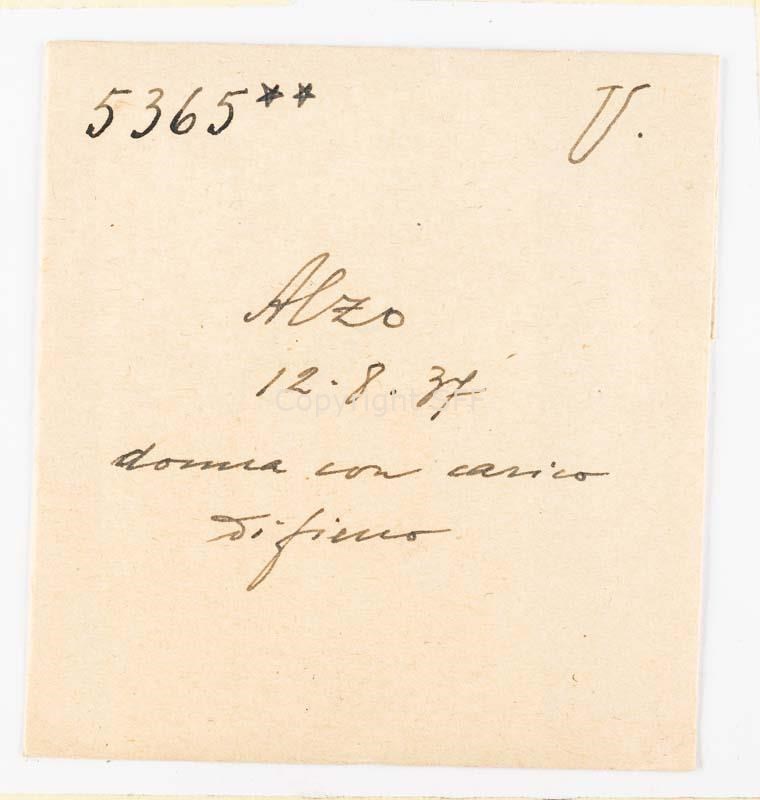 5365** V.
Alzo
12.8.37
Copyright SFF
donna con carico
di fieno